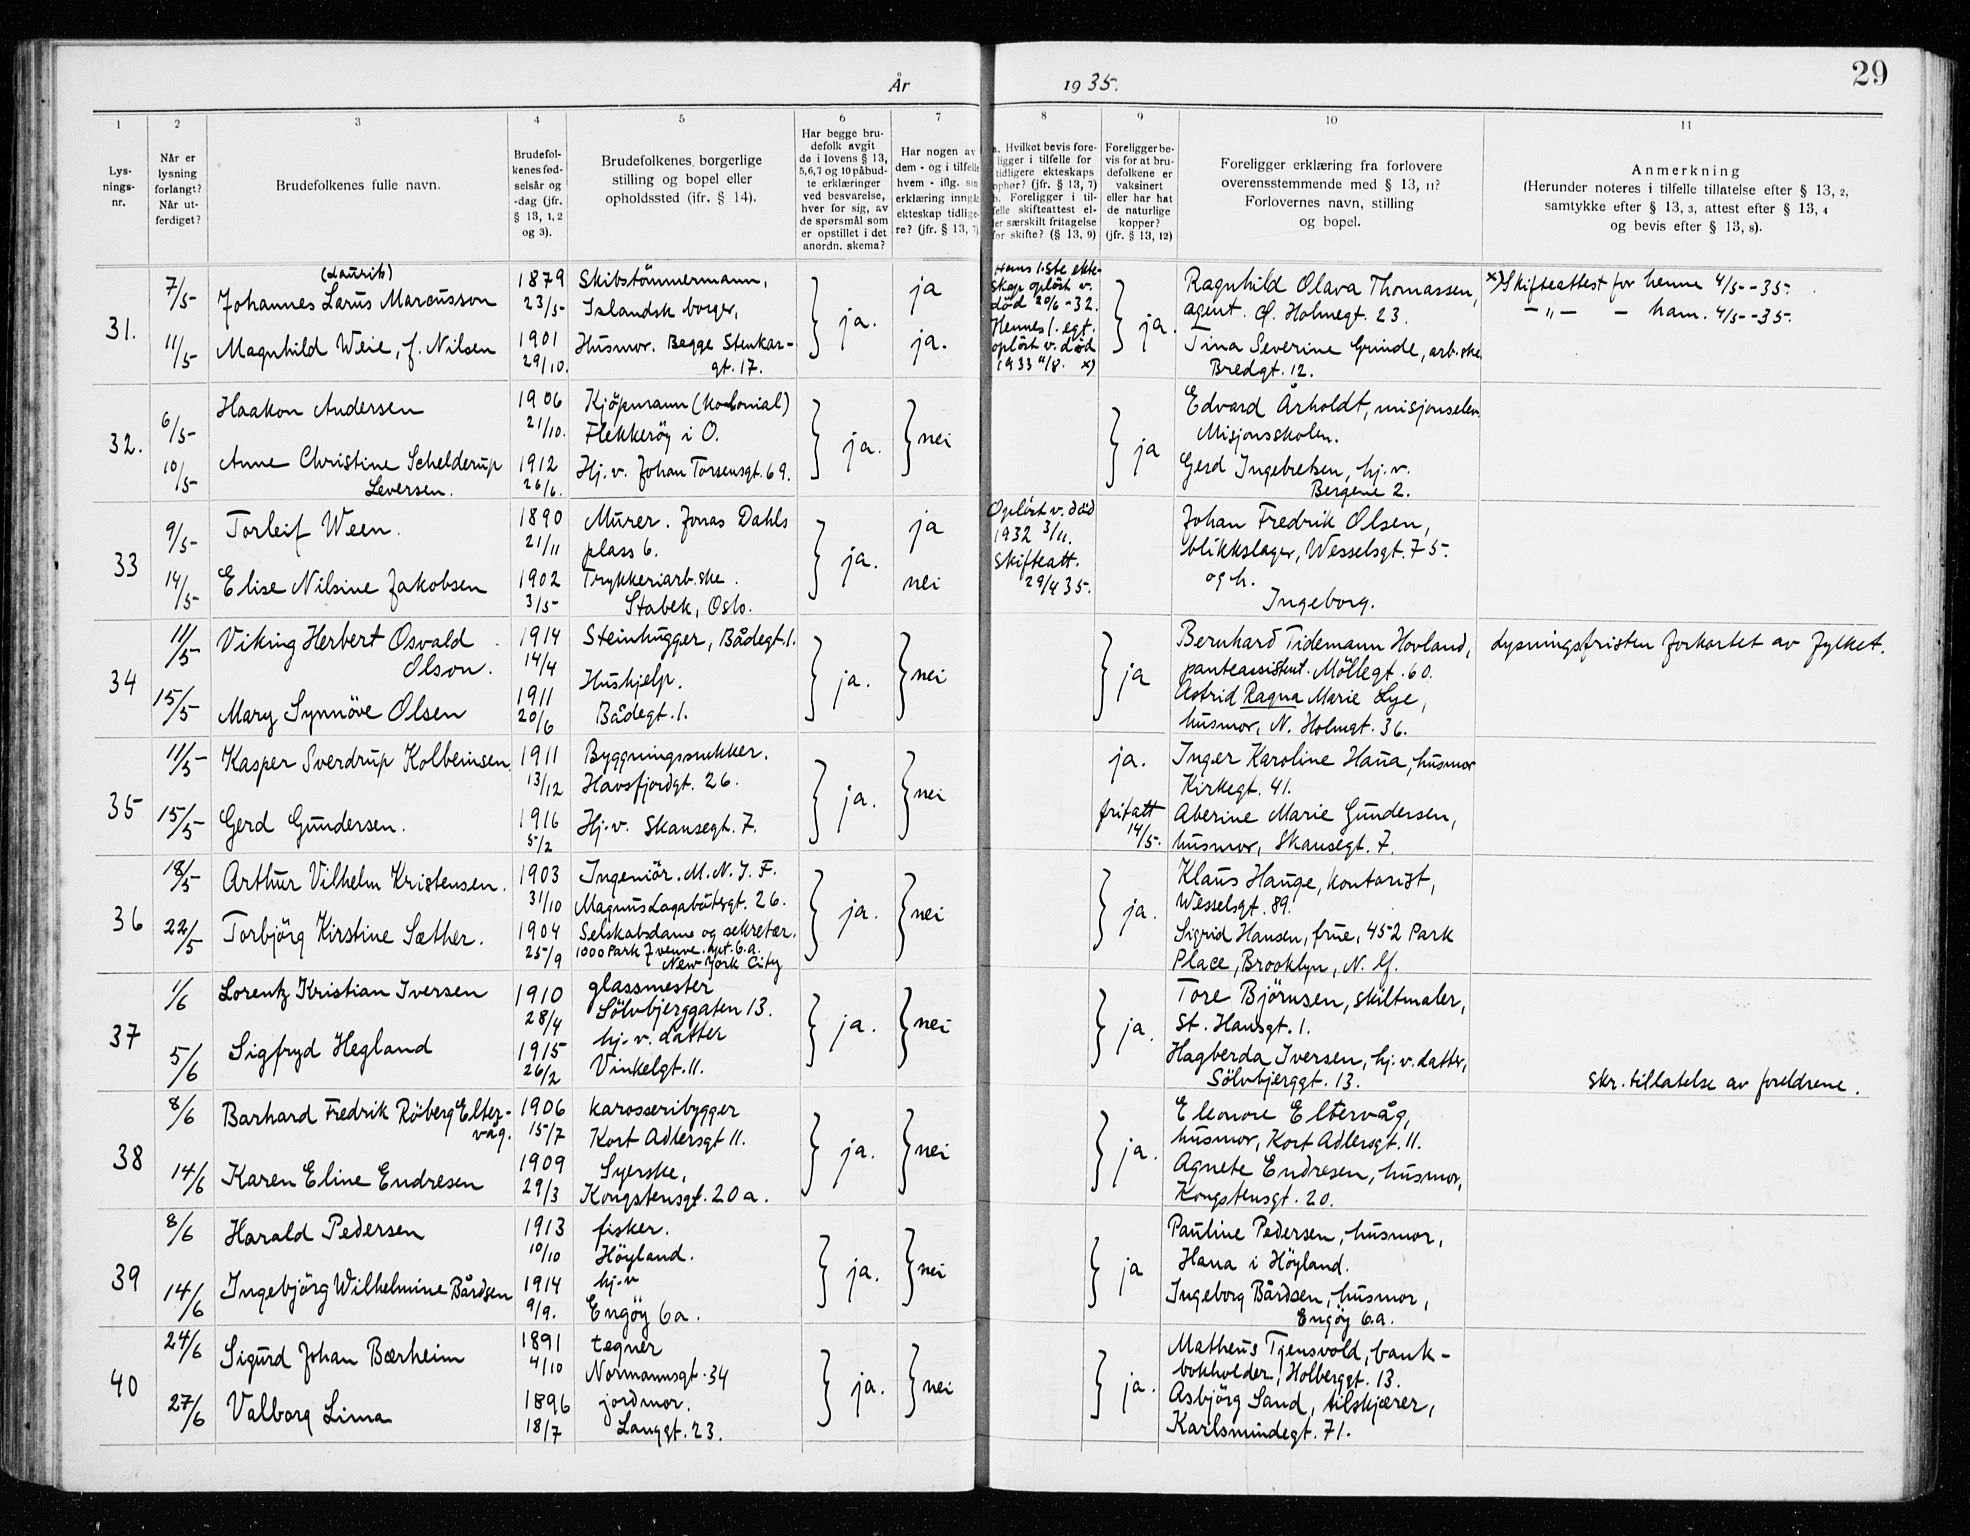 29
År 1935.
1 2 3 4 5 6 7 8 9 10 11
Lys-
nings-
nr.
Når er
lysning
forlangt?
Når ut-
ferdiget?
Brudefolkenes fulle navn.
Brudefol-
kenes fød-
selsår og
-dag (jfr.
§ 13, 1, 2
og 3).
Brudefolkenes borgerlige
stilling og bopel eller
opholdssted (ifr. § 14).
Har begge bru-
defolk avgit
de i lovens § 13,
5,6,7 og 10 påbud-
te erklæringer
ved besvarelse,
hver for sig, av
de spørsmål som
er opstillet i det
anordn. skema?
Har nogen av
dem - og i tilfelle
hvem - iflg. sin
erklæring inngått
ekteskap tidlige-
re? (jfr. § 13, 7)
a. Hvilket bevis fore-
ligger i tilfelle for
tidligere ekteskaps
ophør? (jfr. § 13, 7)
b. Foreligger i til-
felle skifteattest el-
ler særskilt fritagelse
for skifte? (§ 13, 9)
Foreligger be-
vis for at bru-
defolkene er
vaksinert
eller har hat
de naturlige
kopper?
(jfr. § 13, 12)
Foreligger erklæring fra forlovere
overensstemmende med § 13, 11?
Forlovernes navn, stilling
og bopel.
Anmerkning
(Herunder noteres i tilfelle tillatelse efter § 13, 2,
samtykke efter § 13, 3, attest efter § 13, 4
og bevis efter § 13, 8).
31.
7/5
11/5
(Laurits)
Johannes Larus Marcusson
Magnhild Weie, f. Nilsen
1879
23/5
1901
29/10.
Skibstömmermann,
Islandsk borger,
Husmor. Begge Stenkar-
gt. 17.
ja.
ja
ja.
Hans 1.ste ekte-
skap oplöst v.
död 20/6-32.
Hennes 1. egt.
oplöst v. död
1933 11/8. x)
ja.
Ragnhild Olava Thomassen,
agent. Ø. Holmegt. 23.
Tina Severine Grinde, arb.ske
Bredgt. 12.
x) Skifteattest for henne 4/5--35.
-„- - ham. 4/5--35.
32.
6/5
10/5
Haakon Andersen
Anne Christine Schelderup
Leversen.
1906
21/10.
1912
26/6.
Kjöpmann (Kolonial)
Flekkeröy i O.
Hj. v. Johan Torsensgt. 69.
ja.
nei
ja
Edvard Årholdt, misjonselev
Misjonsskolen.
Gerd Ingebretsen, hj. v.
Bergene 2.
33
9/5
14/5
Torleif Ween.
Elise Nilsine Jakobsen
1890
21/11
1902
3/5
Murer. Jonas Dahls
plass 6.
Trykkeriarb.ske.
Stabek, Oslo.
ja.
ja
nei
Oplöst v. död
1932 3/11.
Skifteatt.
29/4 35.
Johan Fredrik Olsen,
blikkslager, Wesselsgt. 75.
og h.
Ingeborg.
34
11/5
15/5
Viking Herbert Osvald
Olson.
Mary Synnöve Olsen
1914
14/4
1911
20/6
Steinhugger, Bådegt. 1.
Hushjelp.
Bådegt. 1.
ja.
nei
ja
Bernhard Tidemann Hovland,
panteassistent. Möllegt. 60.
Astrid Ragna Marie Lye,
husmor, N. Holmgt. 36.
Lysningsfristen forkortet av fylket.
35
11/5
15/5
Kasper Sverdrup Kolbeinsen.
Gerd Gundersen.
1911
13/12
1916
5/2
Bygningssnekker.
Havsfjordgt. 26.
Hj. v. Skansegt. 7.
ja.
nei
ja.
fritatt
14/5.
Inger Karoline Haua, husmor
Kirkegt. 41.
Aberine Marie Gundersen,
husmor, Skansegt. 7.
36
18/5
22/5
Arthur Vilhelm Kristensen.
Torbjörg Kirstine Sæther.
1903
31/10
1904
25/9
Ingeniör. M. N. I. F.
Magnus Lagabötersgt. 26.
Selskabsdame og sekretær.
1000 Park 7 venue. apt. 6.a.
New York City
ja.
nei
ja.
Klaus Hauge, kontorist,
Wesselsgt. 89.
Sigrid Hansen, frue, 452 Park
Place, Brooklyn, N. Y.
37
1/6
5/6
Lorentz Kristian Iversen
Sigfryd Hegland
1910
28/4
1915
26/2
glassmester
Sölvbjerggaten 13.
hj. v. datter
Vinkelgt. 11.
ja.
nei
ja.
Tore Björnsen, skiltmaler,
St. Hansgt. 1.
Hagberda Iversen, hj. v. datter,
Sölvbjerggt. 13.
skr. tillatelse av foreldrene.
38
8/6
14/6
Barhard Fredrik Röberg Elter-
våg.
Karen Eline Endresen
1906
15/7
1909
29/3
karosseribygger
Kort Adlersgt 11.
Syerske,
Kongstensgt. 20 a.
ja.
nei
ja.
Eleonore Eltervåg,
husmor, Kort Adlersgt. 11.
Agnete Endresen, husmor,
Kongstensgt. 20.
39
8/6
14/6
Harald Pedersen
Ingebjörg Wilhelmine Bårdsen
1913
10/10
1914
9/9.
fisker.
Höyland.
hj. v
Engöy 6a.
ja.
nei
ja
Pauline Pedersen, husmor,
Hana i Höyland.
Ingeborg Bårdsen, husmor,
Engöy 6.a.
40
24/6
27/6
Sigurd Johan Bærheim
Valborg Lima
1891
4/10
1896
18/7
tegner
Normannsgt. 34
jordmor.
Langgt. 23.
ja.
nei
ja.
Matheus Tjensvold, bank-
bokholder, Holberggt. 13.
Asbjörg Sand, tilskjærer,
Karlsmindegt. 71.